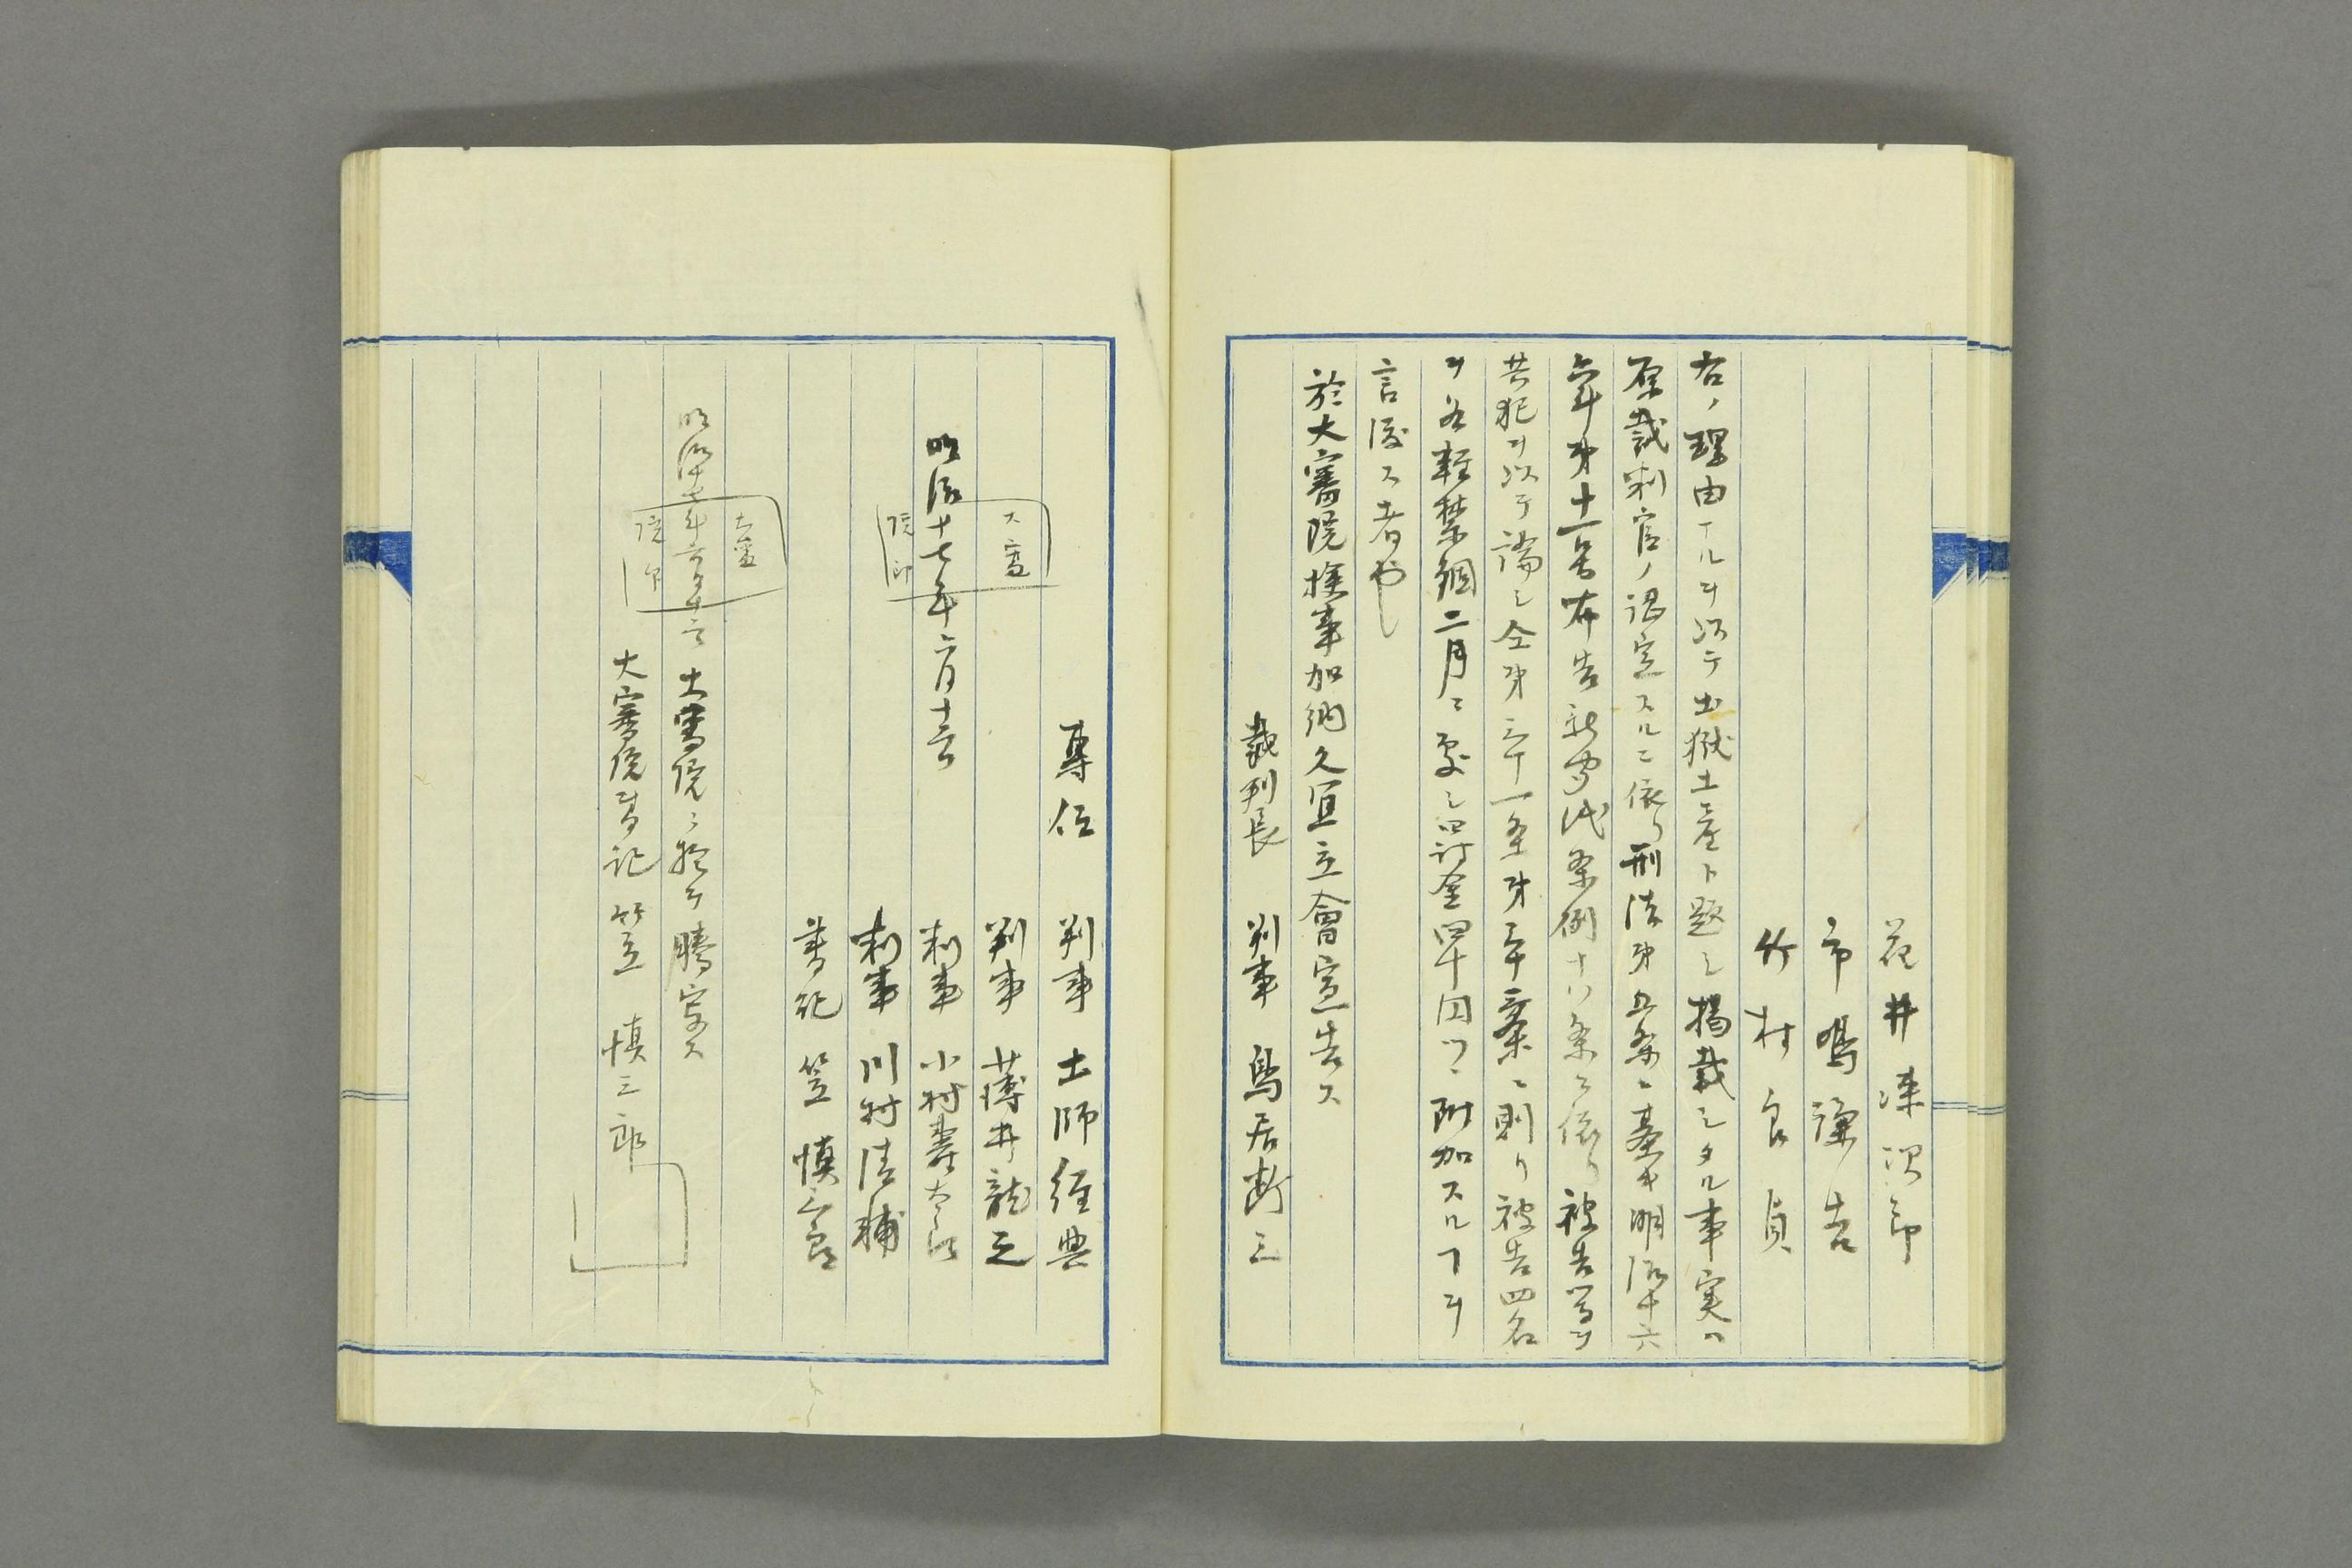 花井漆次郎
市嶋謙吉
竹村良貞
右ノ理由ナルヲ以テ出獄土産ト題シ掲載シタル事実ハ
原裁判官ノ認定スルニ依リ刑法第五条ニ基キ明治十六
年第十二号布告新聞紙条例十八条ニ依リ被告等ヲ
共犯ヲ以テ論シ仝第三十一条第三十二条ニ則リ被告四名
ヲ各軽禁錮二月ニ処シ罰金四十円ツヽ附加スルヿヲ
言渡ス者也
於大審院検事加納久宜立會宣告ス
裁判長 判事 鳥居断三
専任 判事 土師経典
判事 薄井龍之
明治十七年六月十二日 判事 小村寿太郎
大審院印
判事 川村清輔
書記 笠 慎三郎
明治十七年六月十三日 大審院ニ於テ謄写ス
大審院印
大審院書記 笠 慎三郎